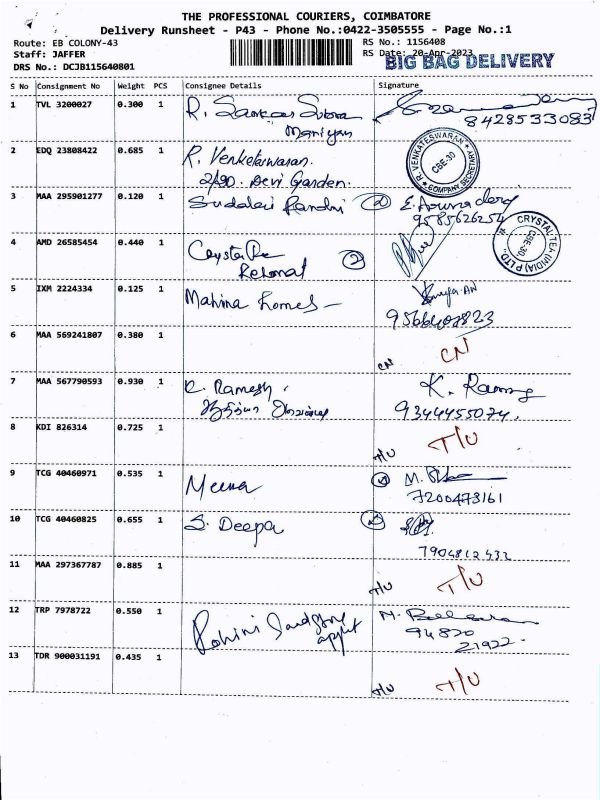 THE PROFESSIONAL COURIERS, COIMBATORE
Delivery Runsheet - P43 - Phone No.:0422-3505555 - Page No.:1
Route: EB COLONY-43
Staff: JAFFER
DRS No.: DCJB115640801
RS No.: 1156408
RS Date: 20-Apr-2023
BIG BAG DELIVERY
S No Consignment No Weight PCS Consignee Details Signature
1 TVL 3200027 0.300 1 R. Sankar Subra
Maniyan
8428533083
2 EDQ 23808422 0.685 1 R. Venketeswaran.
2/90. Devi Garden.
R. VENKATESWARAN
CBE-30
COMPANY SECRETARY
3 MAA 295901277 0.120 1 Sudalai Pandni
9585626254
4 AMD 26585454 0.440 1 Crysta
2
CRYSTAL TEX (INDIA) P LTD.
CBE-30.
5 IXM 2224334 0.125 1 Mahina Homes -
9566402823
6 MAA 569241807 0.380 1
CN CN
7 MAA 567790593 0.930 1 R. Ramesh. K.
9344455074.
8 KDI 826314 0.725 1
T/U T/U
9 TCG 40460971 0.535 1 Meena M.
7200473161
10 TCG 40460825 0.655 1 S. Deepa
7904812432
11 MAA 297367787 0.885 1
T/U T/U
12 TRP 7978722 0.550 1 Rohini M.
94820
21922.
13 TDR 900031191 0.435 1
T/U T/U